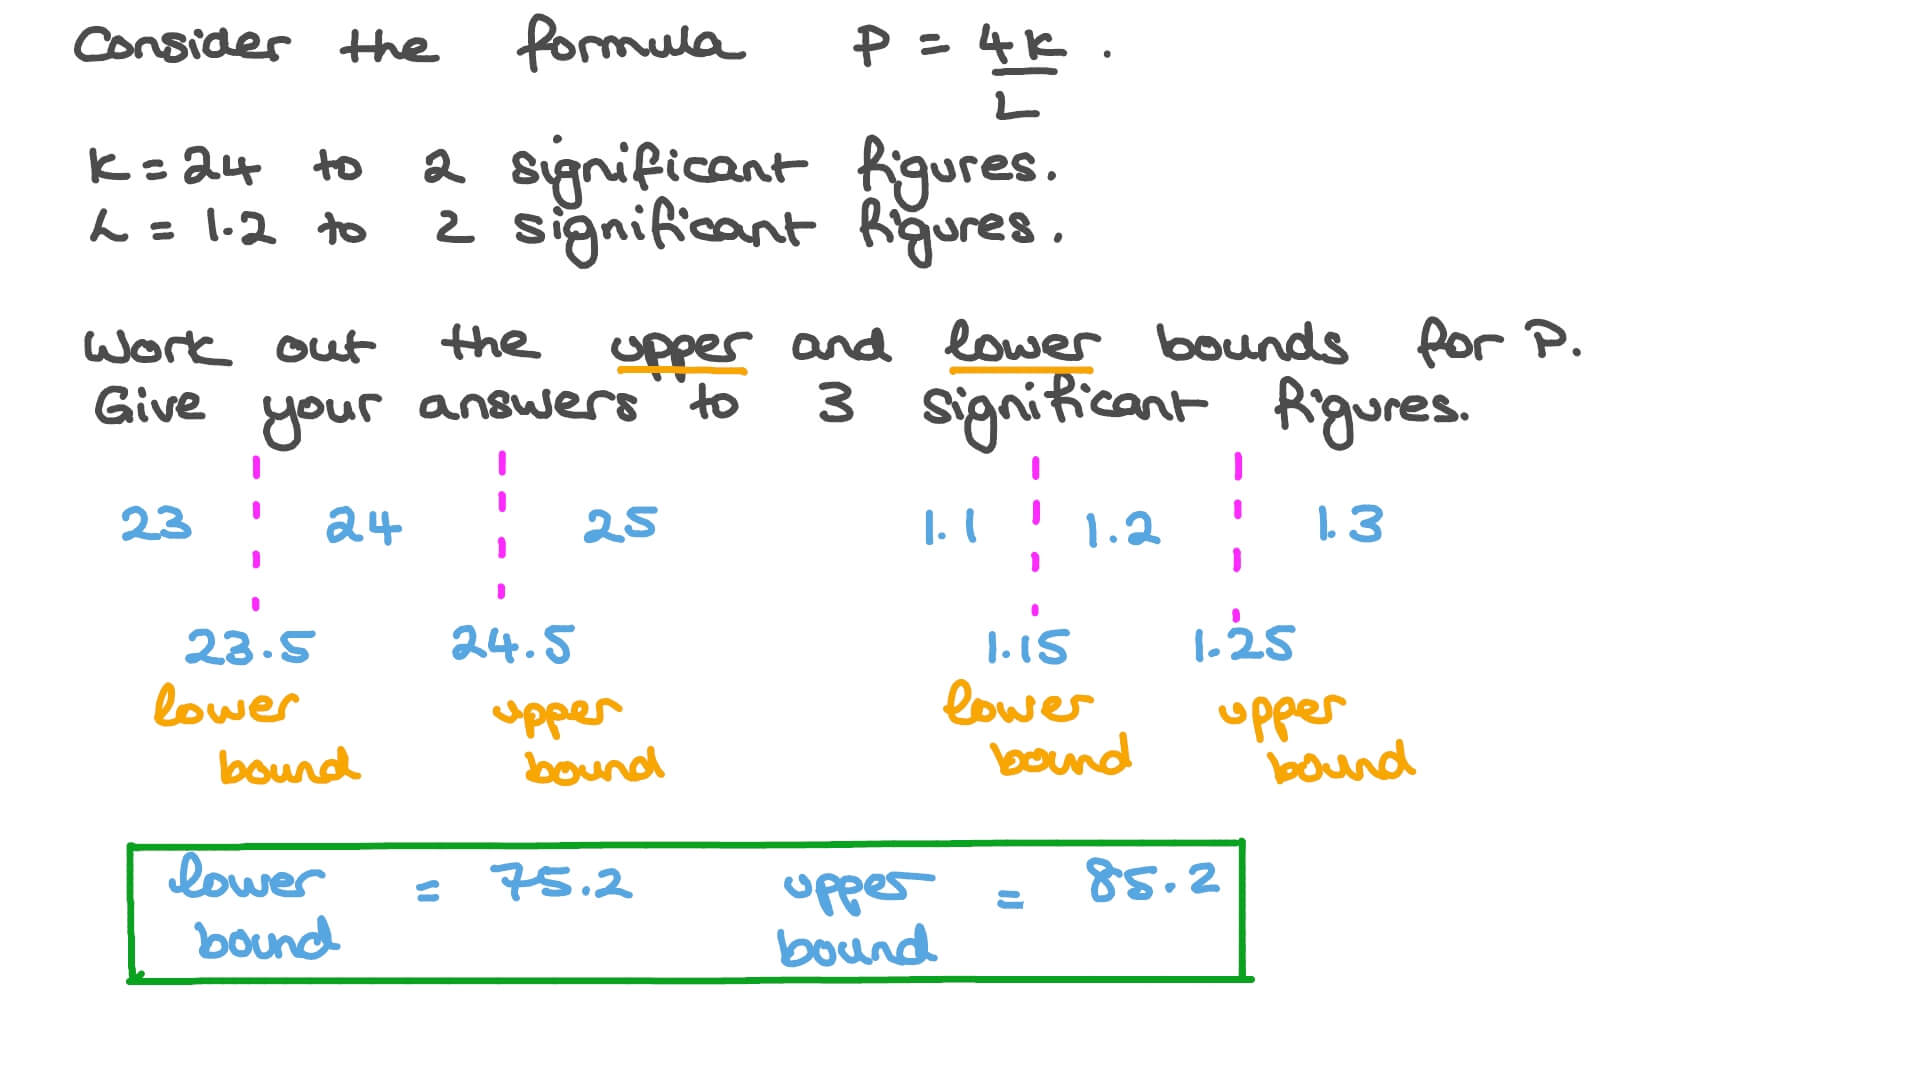 Consider the formula P = 4K/L.
K = 24 to 2 significant figures.
L = 1.2 to 2 significant figures.
Work out the upper and lower bounds for P.
Give your answers to 3 significant figures.
23 24 25 1.1 1.2 1.3
23.5 24.5 1.15 1.25
lower bound upper bound lower bound upper bound
lower bound = 75.2 upper bound = 85.2